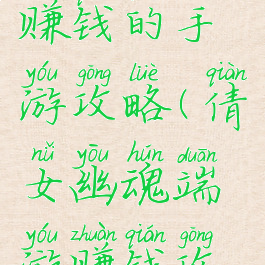 赚钱的手
yóu gōng lüè qiàn
游攻略(倩
nǚ yōu hún duān
女幽魂端
yóu zhuàn qián gōng
游赚钱攻